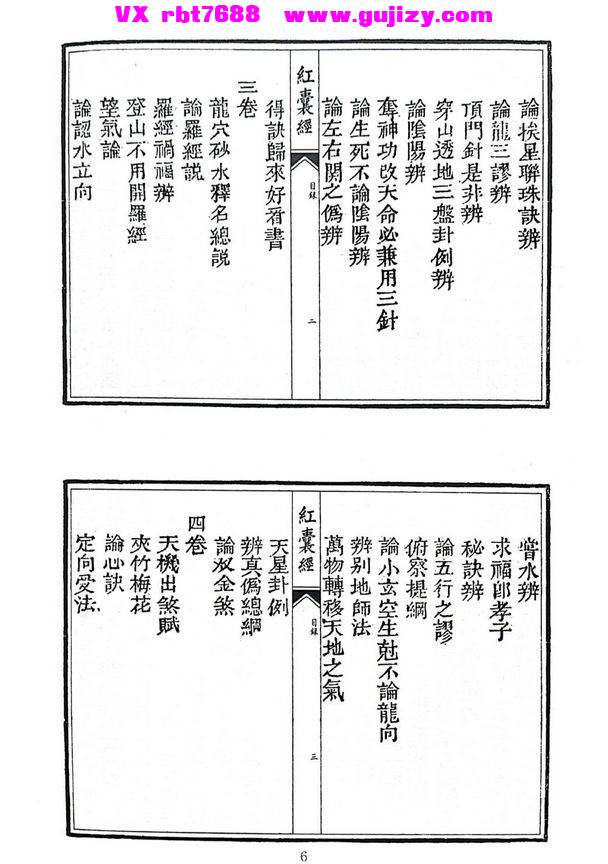 VX rbt7688 www.gujizy.com
論挨星聯珠訣辨
論龍三謬辨
頂門針是非辨
穿山透地三盤卦例辨
論陰陽辨
奪神功改天命必兼用三針
論生死不論陰陽辨
論左右関之偽辨
紅囊經
目錄
二
得訣歸來好看書
三卷
龍穴砂水釋名總説
論羅經説
羅經禍福辨
登山不用開羅經
望氣論
論認水立向
嘗水辨
求福郎孝子
秘訣辨
論五行之謬
俯察提綱
論小玄空生尅不論龍向
辨别地師法
萬物轉移天地之氣
紅囊經
目錄
三
天星卦例
辨真偽總綱
論双金煞
四卷
天機出煞賦
夾竹梅花
論心訣
定向受法
6